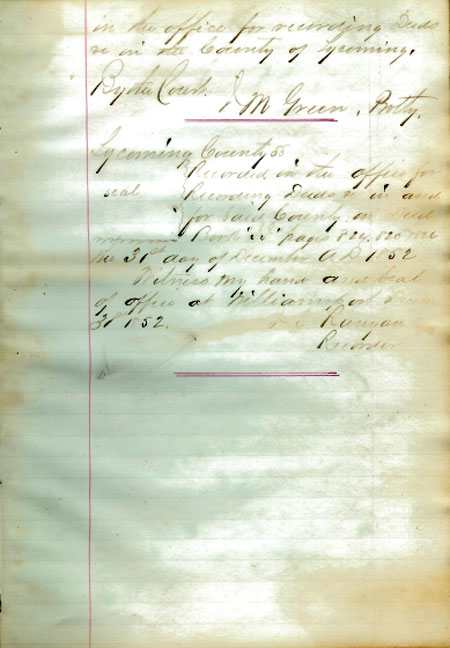 in the office for recording Deeds
&c in the County of Lycoming.
By the Court.
M Green, Protty.
Lycoming County SS
Recorded in the office for
seal Recording Deeds &c in and
for said County in Deed
Book pages 824, 825
the 31st day of December A D 1852
Witness my hand and seal
of office at Williamsport
31st 1852.
Runyan
Recorder